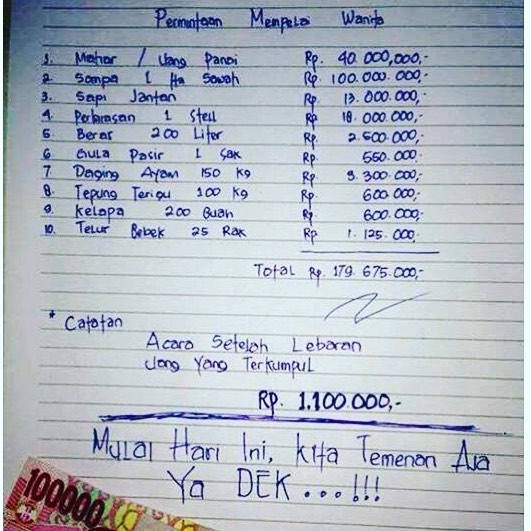 Permintaan Mempelai Wanita
1. Mahar / Uang Panai Rp. 40.000,000,-
2. Sompa 1 Ha Sawah Rp. 100.000.000,-
3. Sapi Jantan Rp. 13.000.000,-
4. Perhiasan 1 Stell Rp. 18.000.000,-
5 Beras 200 Liter Rp. 2.500.000,-
6 Gula Pasir 1 Sak Rp. 550.000,-
7 Daging Ayam 150 kg Rp. 3.300.000,-
8. Tepung Terigu 100 kg Rp. 600.000,-
9. Kelapa 200 Buah Rp. 600.000,-
10. Telur Bebek 25 Rak Rp 1.125.000,-
Total Rp. 179.675.000,-
* Catatan
Acara Setelah Lebaran
Uang Yang Terkumpul
Rp. 1.100.000,-
Mulai Hari Ini, Kita Temenan Aja
Ya DEK...!!!
100000